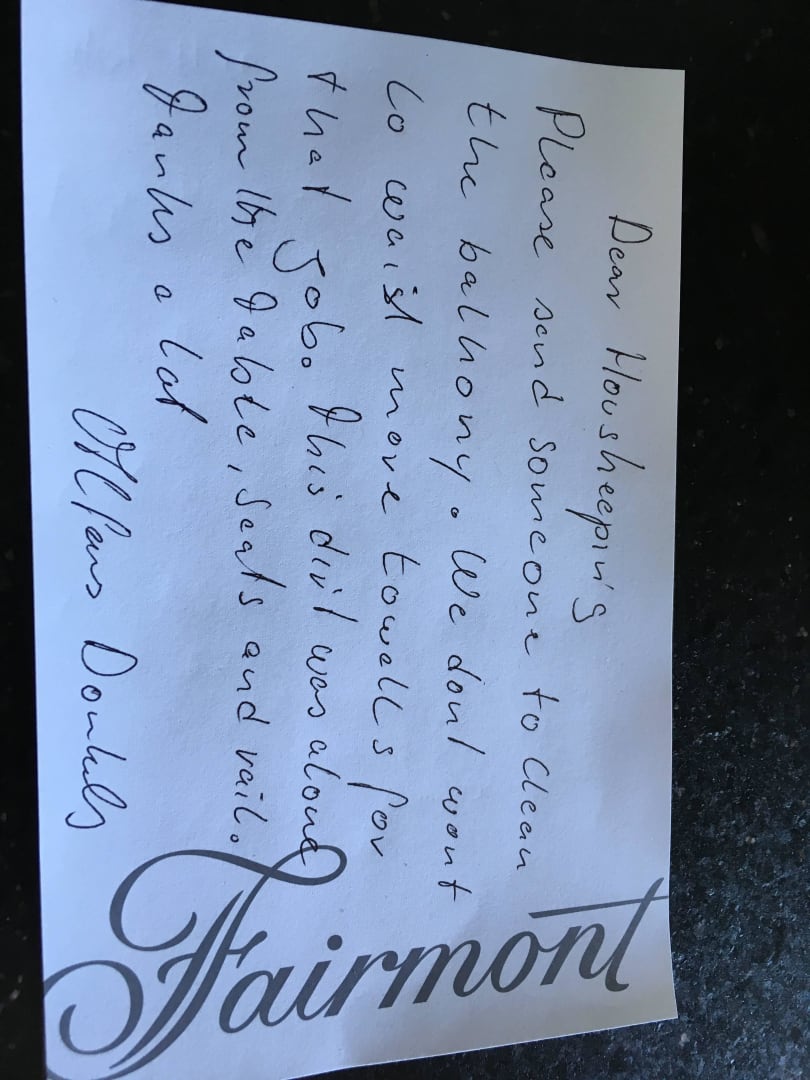 Dear Housheeping
Please send someone to clean
the balhony. We don't want
to waist more towells for
that Job. This dirt was alone
from the Table, seats and rail.
Tanks a lot
Donkels
Fairmont